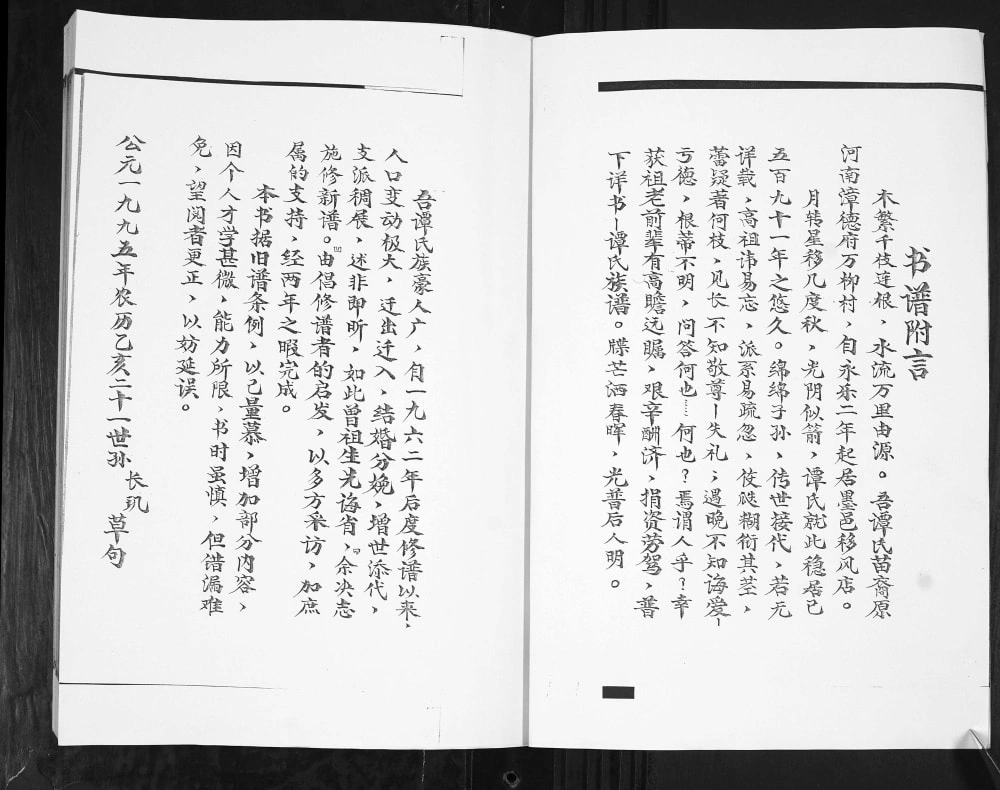 书谱附言
木繁千枝连根，水流万里由源。吾谭氏苗裔原
河南漳德府万柳村，自永乐二年起居墨邑移风店。
月转星移几度秋，光阴似箭，谭氏就此稳居已
五百九十一年之悠久。绵绵子孙，传世接代，若无
详载，高祖讳易忘，派系易疏忽，糊衔其茎，
蕾疑著何枝，见长不知敬尊—失礼；遇晚不知诲爱—
亏德，根蒂不明，问答何也……何也？焉谓人乎？幸
获祖老前辈有高瞻远瞩，艰辛酬济，捐资劳驾，普
下详书—谭氏族谱。牒芒洒春晖，光普后人明。
吾谭氏族豪人广，自一九六二年后度修谱以来，
人口变动极大，迁出迁入，结婚分娩，增世添代，
支派稠展，述非即昕，如此曾祖生先诲省，余决志
施修新谱。由倡修谱者的启发，以多方采访，加庶
属的支持，经两年之暇完成。
本书据旧谱条例，以己量慕，增加部分内容，
因个人才学甚微，能力所限，书时虽慎，但错漏难
免，望阅者更正，以妨延误。
公元一九九五年农历乙亥二十一世孙长玑草句